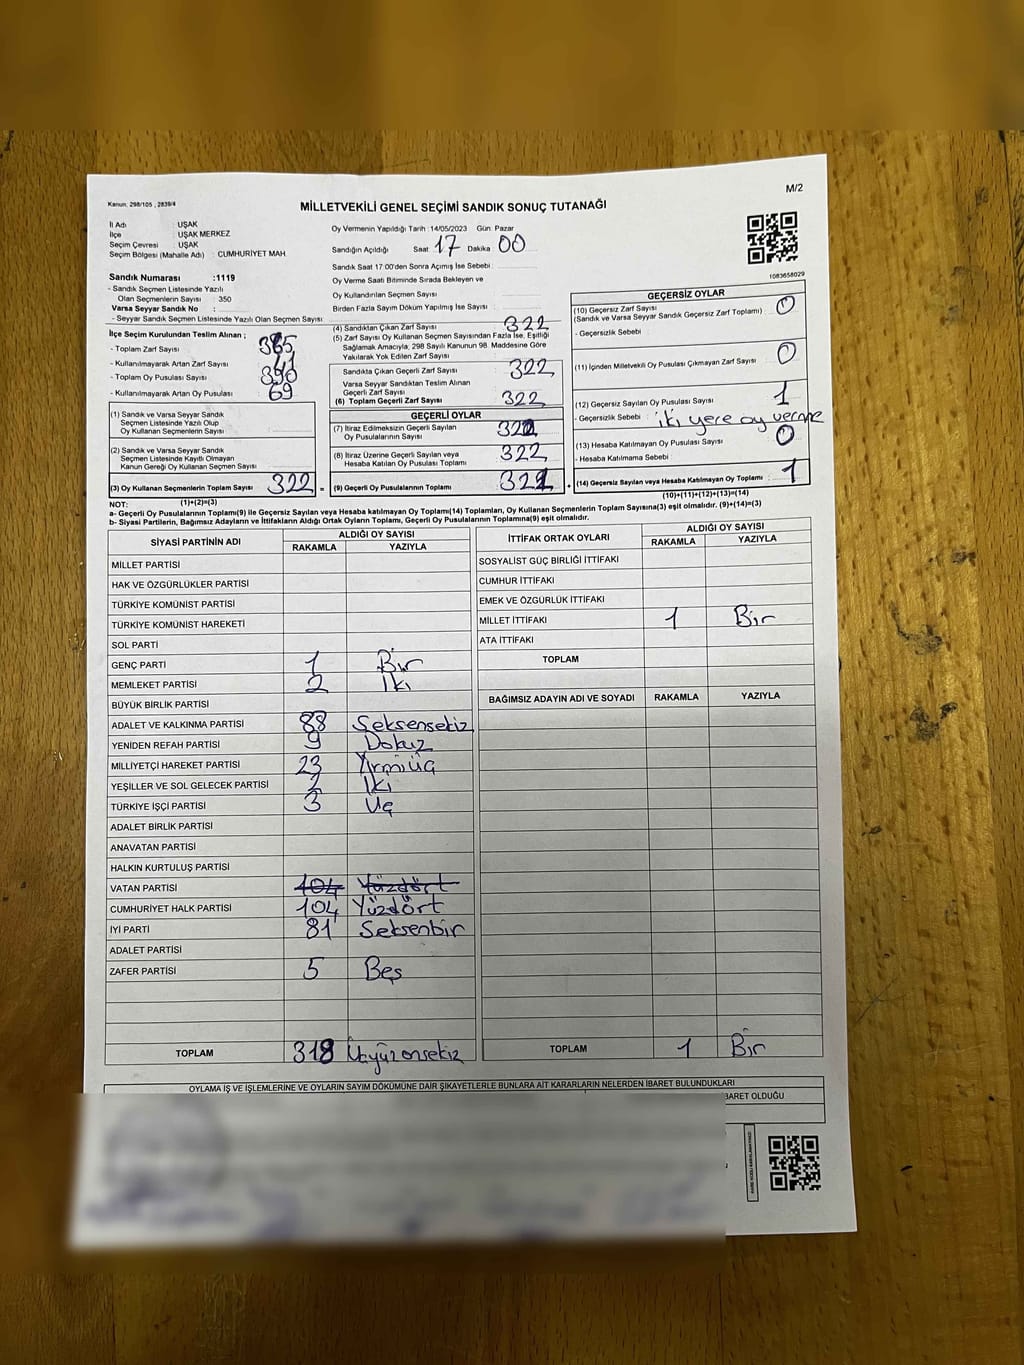 M/2
Kanun: 298/105 , 2839/4
MİLLETVEKİLİ GENEL SEÇİMİ SANDIK SONUÇ TUTANAĞI
İl Adı : UŞAK
İlçe : UŞAK MERKEZ
Seçim Çevresi : UŞAK
Seçim Bölgesi (Mahalle Adı) : CUMHURİYET MAH.
Sandık Numarası :1119
- Sandık Seçmen Listesinde Yazılı
Olan Seçmenlerin Sayısı : 350
Varsa Seyyar Sandık No :
- Seyyar Sandık Seçmen Listesinde Yazılı Olan Seçmen Sayısı:
İlçe Seçim Kurulundan Teslim Alınan ;
- Toplam Zarf Sayısı :
- Kullanılmayarak Artan Zarf Sayısı : 41
- Toplam Oy Pusulası Sayısı : 390
- Kullanılmayarak Artan Oy Pusulası : 69
(1) Sandık ve Varsa Seyyar Sandık
Seçmen Listesinde Yazılı Olup
Oy Kullanan Seçmenlerin Sayısı :
(2) Sandık ve Varsa Seyyar Sandık
Seçmen Listesinde Kayıtlı Olmayan
Kanun Gereği Oy Kullanan Seçmen Sayısı :
(3) Oy Kullanan Seçmenlerin Toplam Sayısı : 322 =
(1)+(2)=(3)
Oy Vermenin Yapıldığı Tarih :14/05/2023 Gün: Pazar
Sandığın Açıldığı Saat 17 Dakika 00
Sandık Saat 17:00'den Sonra Açımış İse Sebebi :
Oy Verme Saati Bitiminde Sırada Bekleyen ve
Oy Kullandırılan Seçmen Sayısı :
Birden Fazla Sayım Döküm Yapılmış İse Sayısı :
(4) Sandıktan Çıkan Zarf Sayısı : 322
(5) Zarf Sayısı Oy Kullanan Seçmen Sayısından Fazla İse, Eşitliği
Sağlamak Amacıyla, 298 Sayılı Kanunun 98. Maddesine Göre
Yakılarak Yok Edilen Zarf Sayısı :
Sandıkta Çıkan Geçerli Zarf Sayısı : 322
Varsa Seyyar Sandıktan Teslim Alınan
Geçerli Zarf Sayısı :
(6) Toplam Geçerli Zarf Sayısı : 322
GEÇERLİ OYLAR
(7) İtiraz Edilmeksizin Geçerli Sayılan
Oy Pusulalarının Sayısı :
(8) İtiraz Üzerine Geçerli Sayılan veya
Hesaba Katılan Oy Pusulası Toplamı : 322
(9) Geçerli Oy Pusulalarının Toplamı : 321 +
1083658029
GEÇERSİZ OYLAR
(10) Geçersiz Zarf Sayısı : 0
(Sandık ve Varsa Seyyar Sandık Geçersiz Zarf Toplamı)
- Geçersizlik Sebebi :
(11) İçinden Milletvekili Oy Pusulası Çıkmayan Zarf Sayısı : 0
(12) Geçersiz Sayılan Oy Pusulası Sayısı : 1
- Geçersizlik Sebebi : iki yere oy verme
(13) Hesaba Katılmayan Oy Pusulası Sayısı : 0
- Hesaba Katılmama Sebebi :
(14) Geçersiz Sayılan veya Hesaba Katılmayan Oy Toplamı : 1
(10)+(11)+(12)+(13)=(14)
NOT:
a- Geçerli Oy Pusulalarının Toplamı(9) ile Geçersiz Sayılan veya Hesaba katılmayan Oy Toplamı(14) Toplamları, Oy Kullanan Seçmenlerin Toplam Sayısına(3) eşit olmalıdır. (9)+(14)=(3)
b- Siyasi Partilerin, Bağımsız Adayların ve İttifakların Aldığı Ortak Oyların Toplamı, Geçerli Oy Pusulalarının Toplamına(9) eşit olmalıdır.
SİYASİ PARTİNİN ADI ALDIĞI OY SAYISI
RAKAMLA YAZIYLA
MİLLET PARTİSİ
HAK VE ÖZGÜRLÜKLER PARTİSİ
TÜRKİYE KOMÜNİST PARTİSİ
TÜRKİYE KOMÜNİST HAREKETİ
SOL PARTİ
GENÇ PARTİ 1 Bir
MEMLEKET PARTİSİ 2 İki
BÜYÜK BİRLİK PARTİSİ
ADALET VE KALKINMA PARTİSİ 88 Seksensekiz
YENİDEN REFAH PARTİSİ 9 Dokuz
MİLLİYETÇİ HAREKET PARTİSİ 23 Yirmiüç
YEŞİLLER VE SOL GELECEK PARTİSİ 2 İki
TÜRKİYE İŞÇİ PARTİSİ 3 Üç
ADALET BİRLİK PARTİSİ
ANAVATAN PARTİSİ
HALKIN KURTULUŞ PARTİSİ
VATAN PARTİSİ 104 Yüzdört
CUMHURİYET HALK PARTİSİ 104 Yüzdört
İYİ PARTİ 81 Seksenbir
ADALET PARTİSİ
ZAFER PARTİSİ 5 Beş
TOPLAM 318 Üçyüzonsekiz
İTTİFAK ORTAK OYLARI ALDIĞI OY SAYISI
RAKAMLA YAZIYLA
SOSYALİST GÜÇ BİRLİĞİ İTTİFAKI
CUMHUR İTTİFAKI
EMEK VE ÖZGÜRLÜK İTTİFAKI
MİLLET İTTİFAKI 1 Bir
ATA İTTİFAKI
TOPLAM
BAĞIMSIZ ADAYIN ADI VE SOYADI RAKAMLA YAZIYLA
TOPLAM 1 Bir
OYLAMA İŞ VE İŞLEMLERİNE VE OYLARIN SAYIM DÖKÜMÜNE DAİR ŞİKAYETLERLE BUNLARA AİT KARARLARIN NELERDEN İBARET BULUNDUKLARI
BARET OLDUĞU